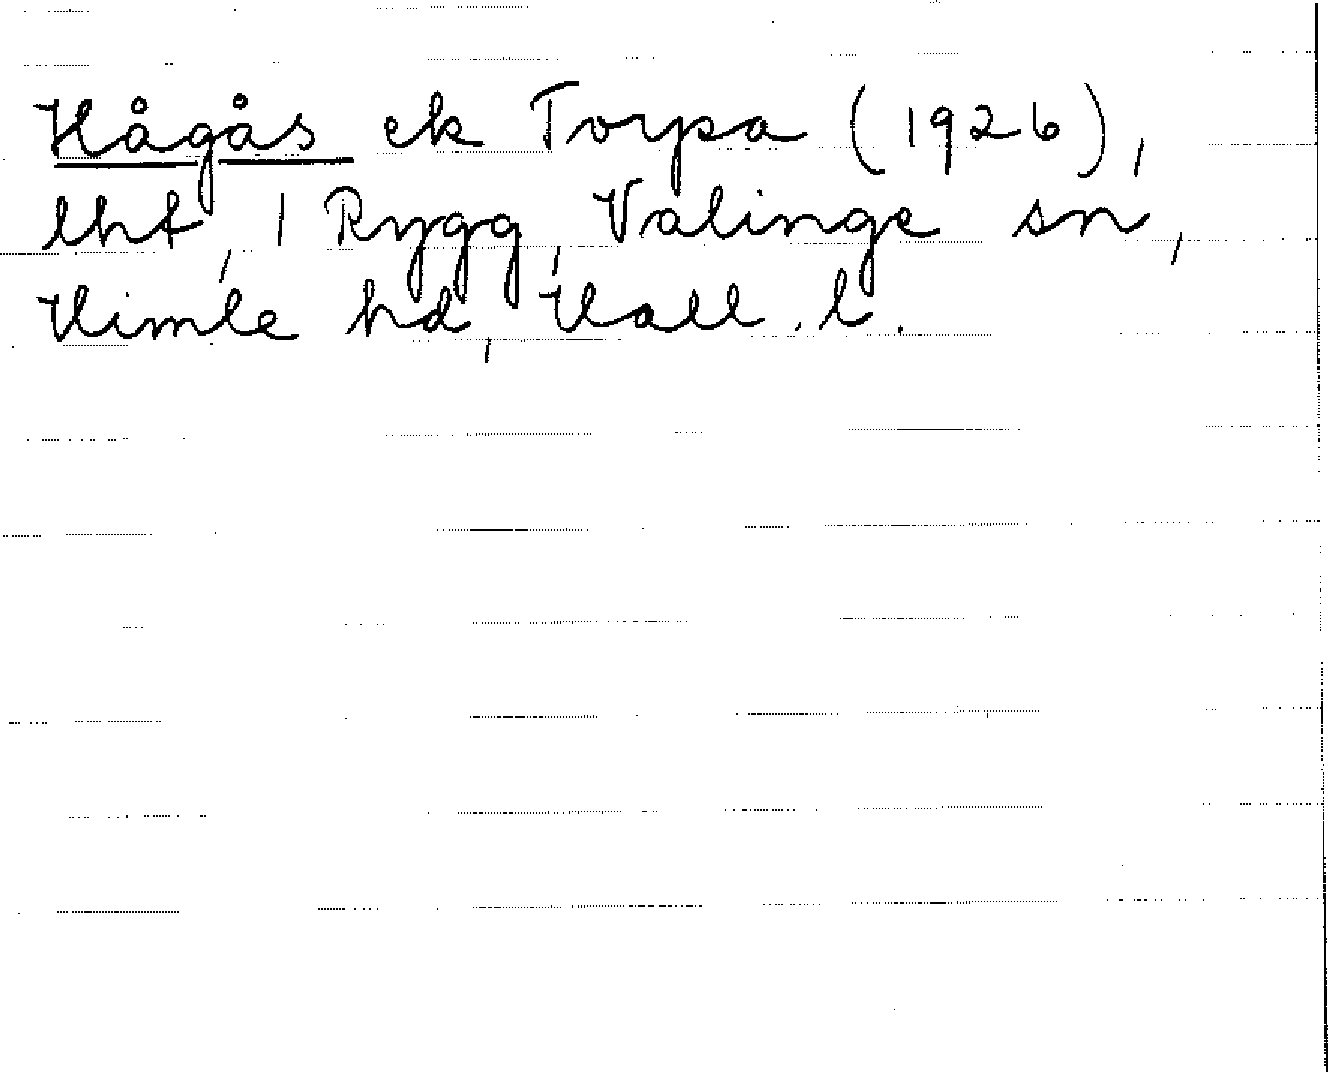 Hågås ek Torpa (1926),
lht, 1 Rygg, Valinge sn,
Himle hd, Hall. l.